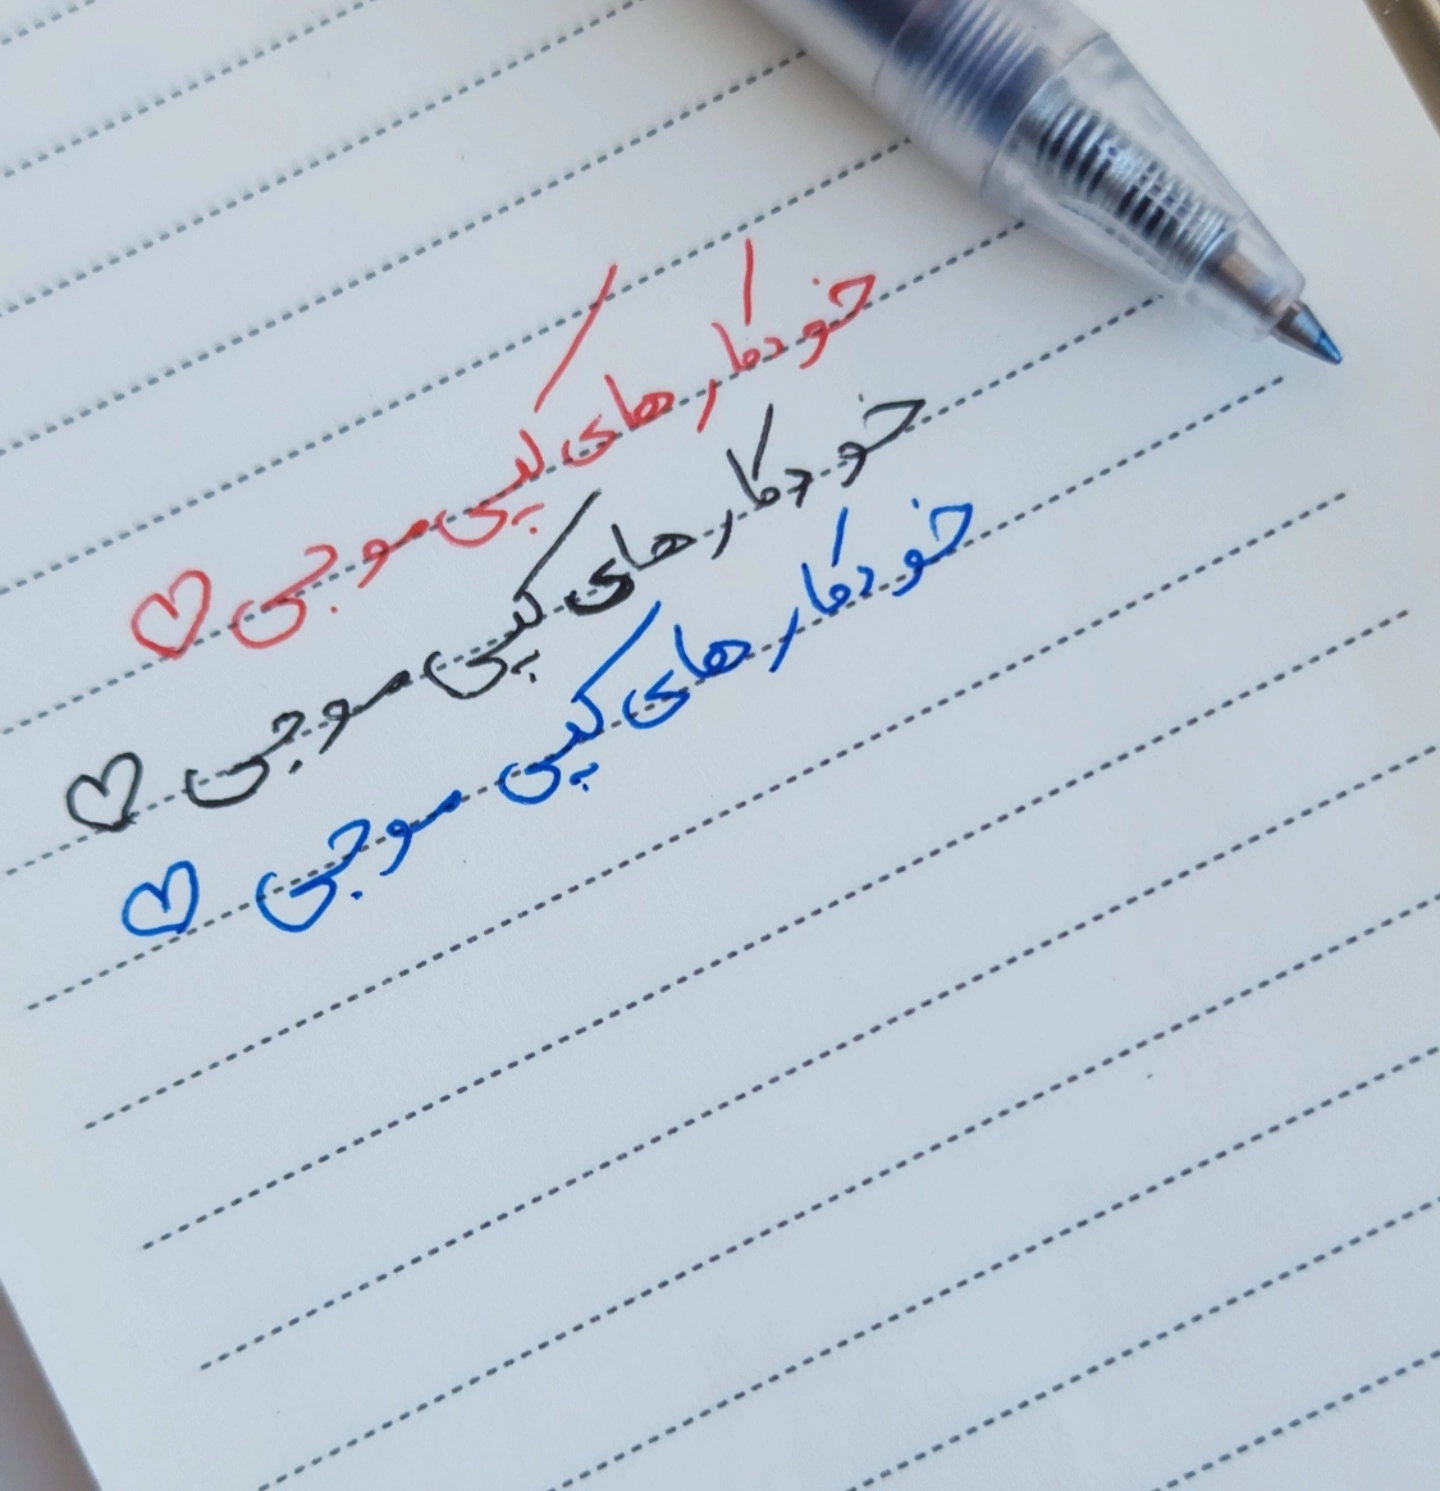 خودکارهای کپی موجی ♡
خودکارهای کپی موجی ♡
خودکارهای کپی موجی ♡